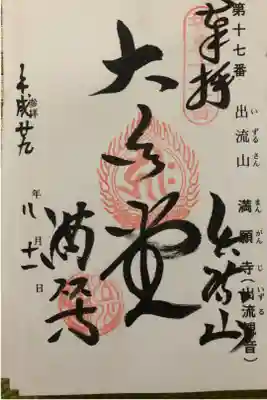 第十七番 出流山 満願寺(出流観音)
いずるさん まんがんじ いずる
奉拝
出流山
大悲堂
満願寺
参拝
平成廿九年八月十一日